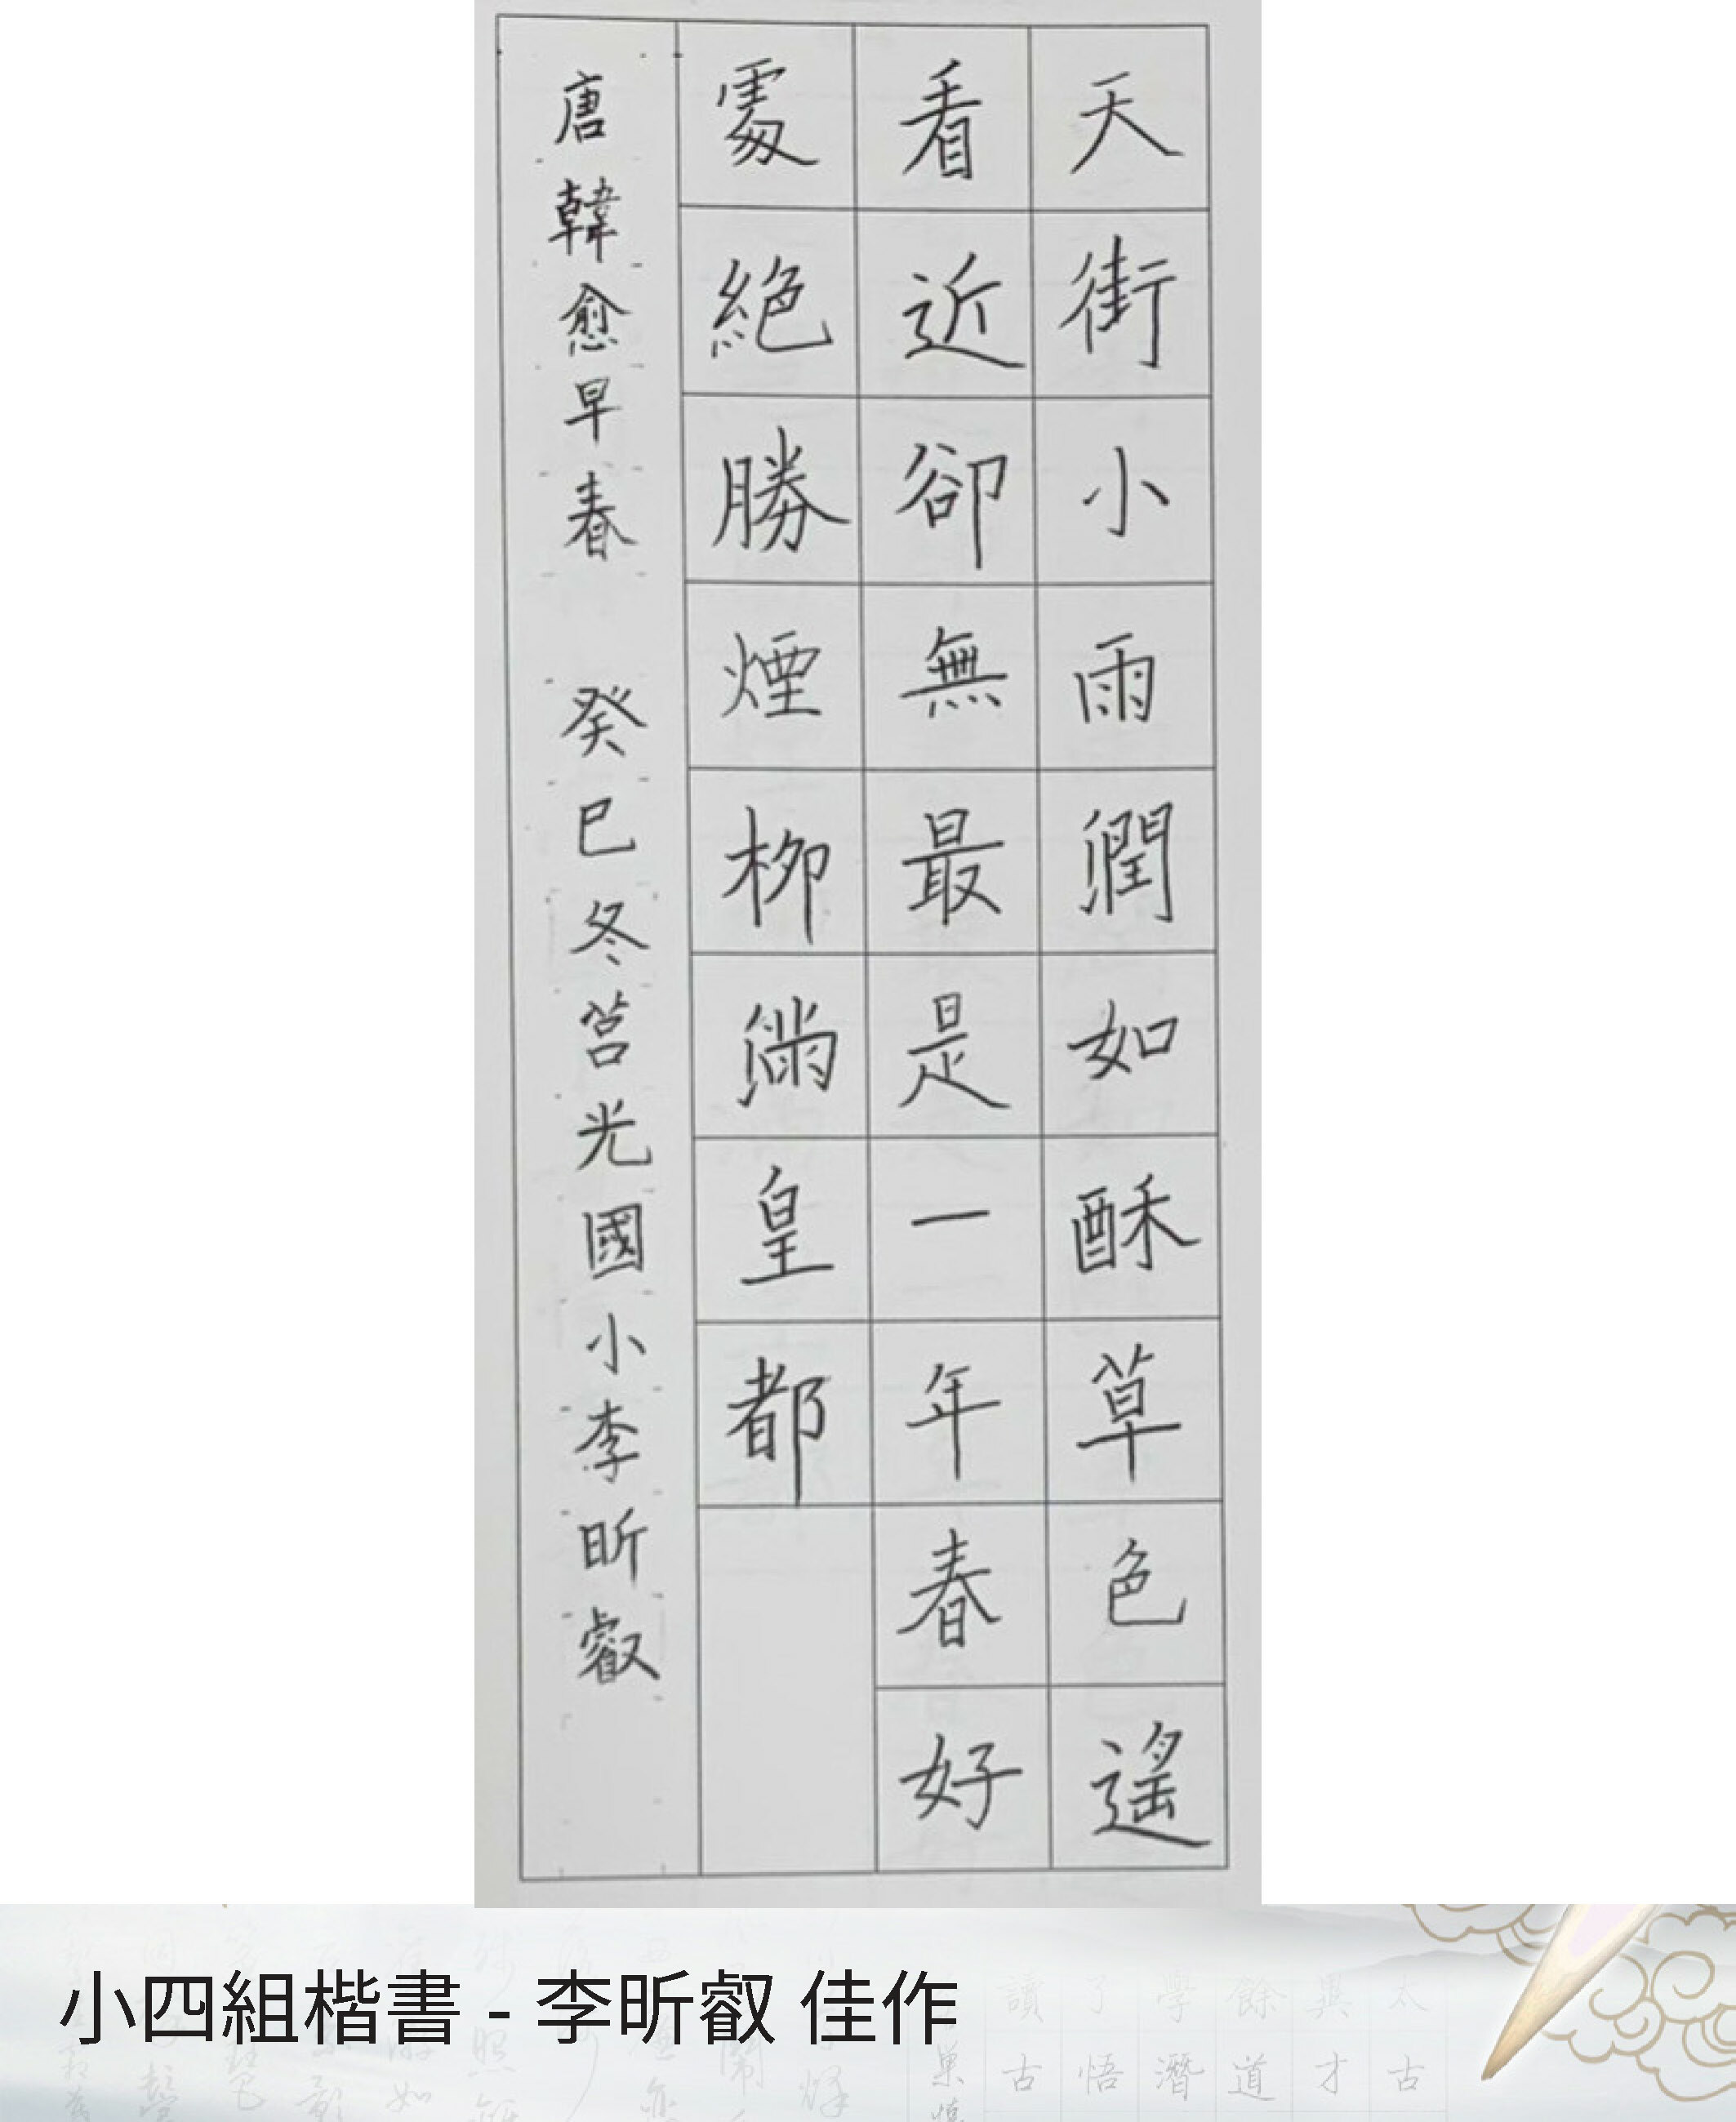 天街小雨潤如酥草色遙
看近卻無最是一年春好
處絕勝煙柳滿皇都
唐韓愈早春 癸巳冬莒光國小李昕叡
小四組楷書 - 李昕叡 佳作